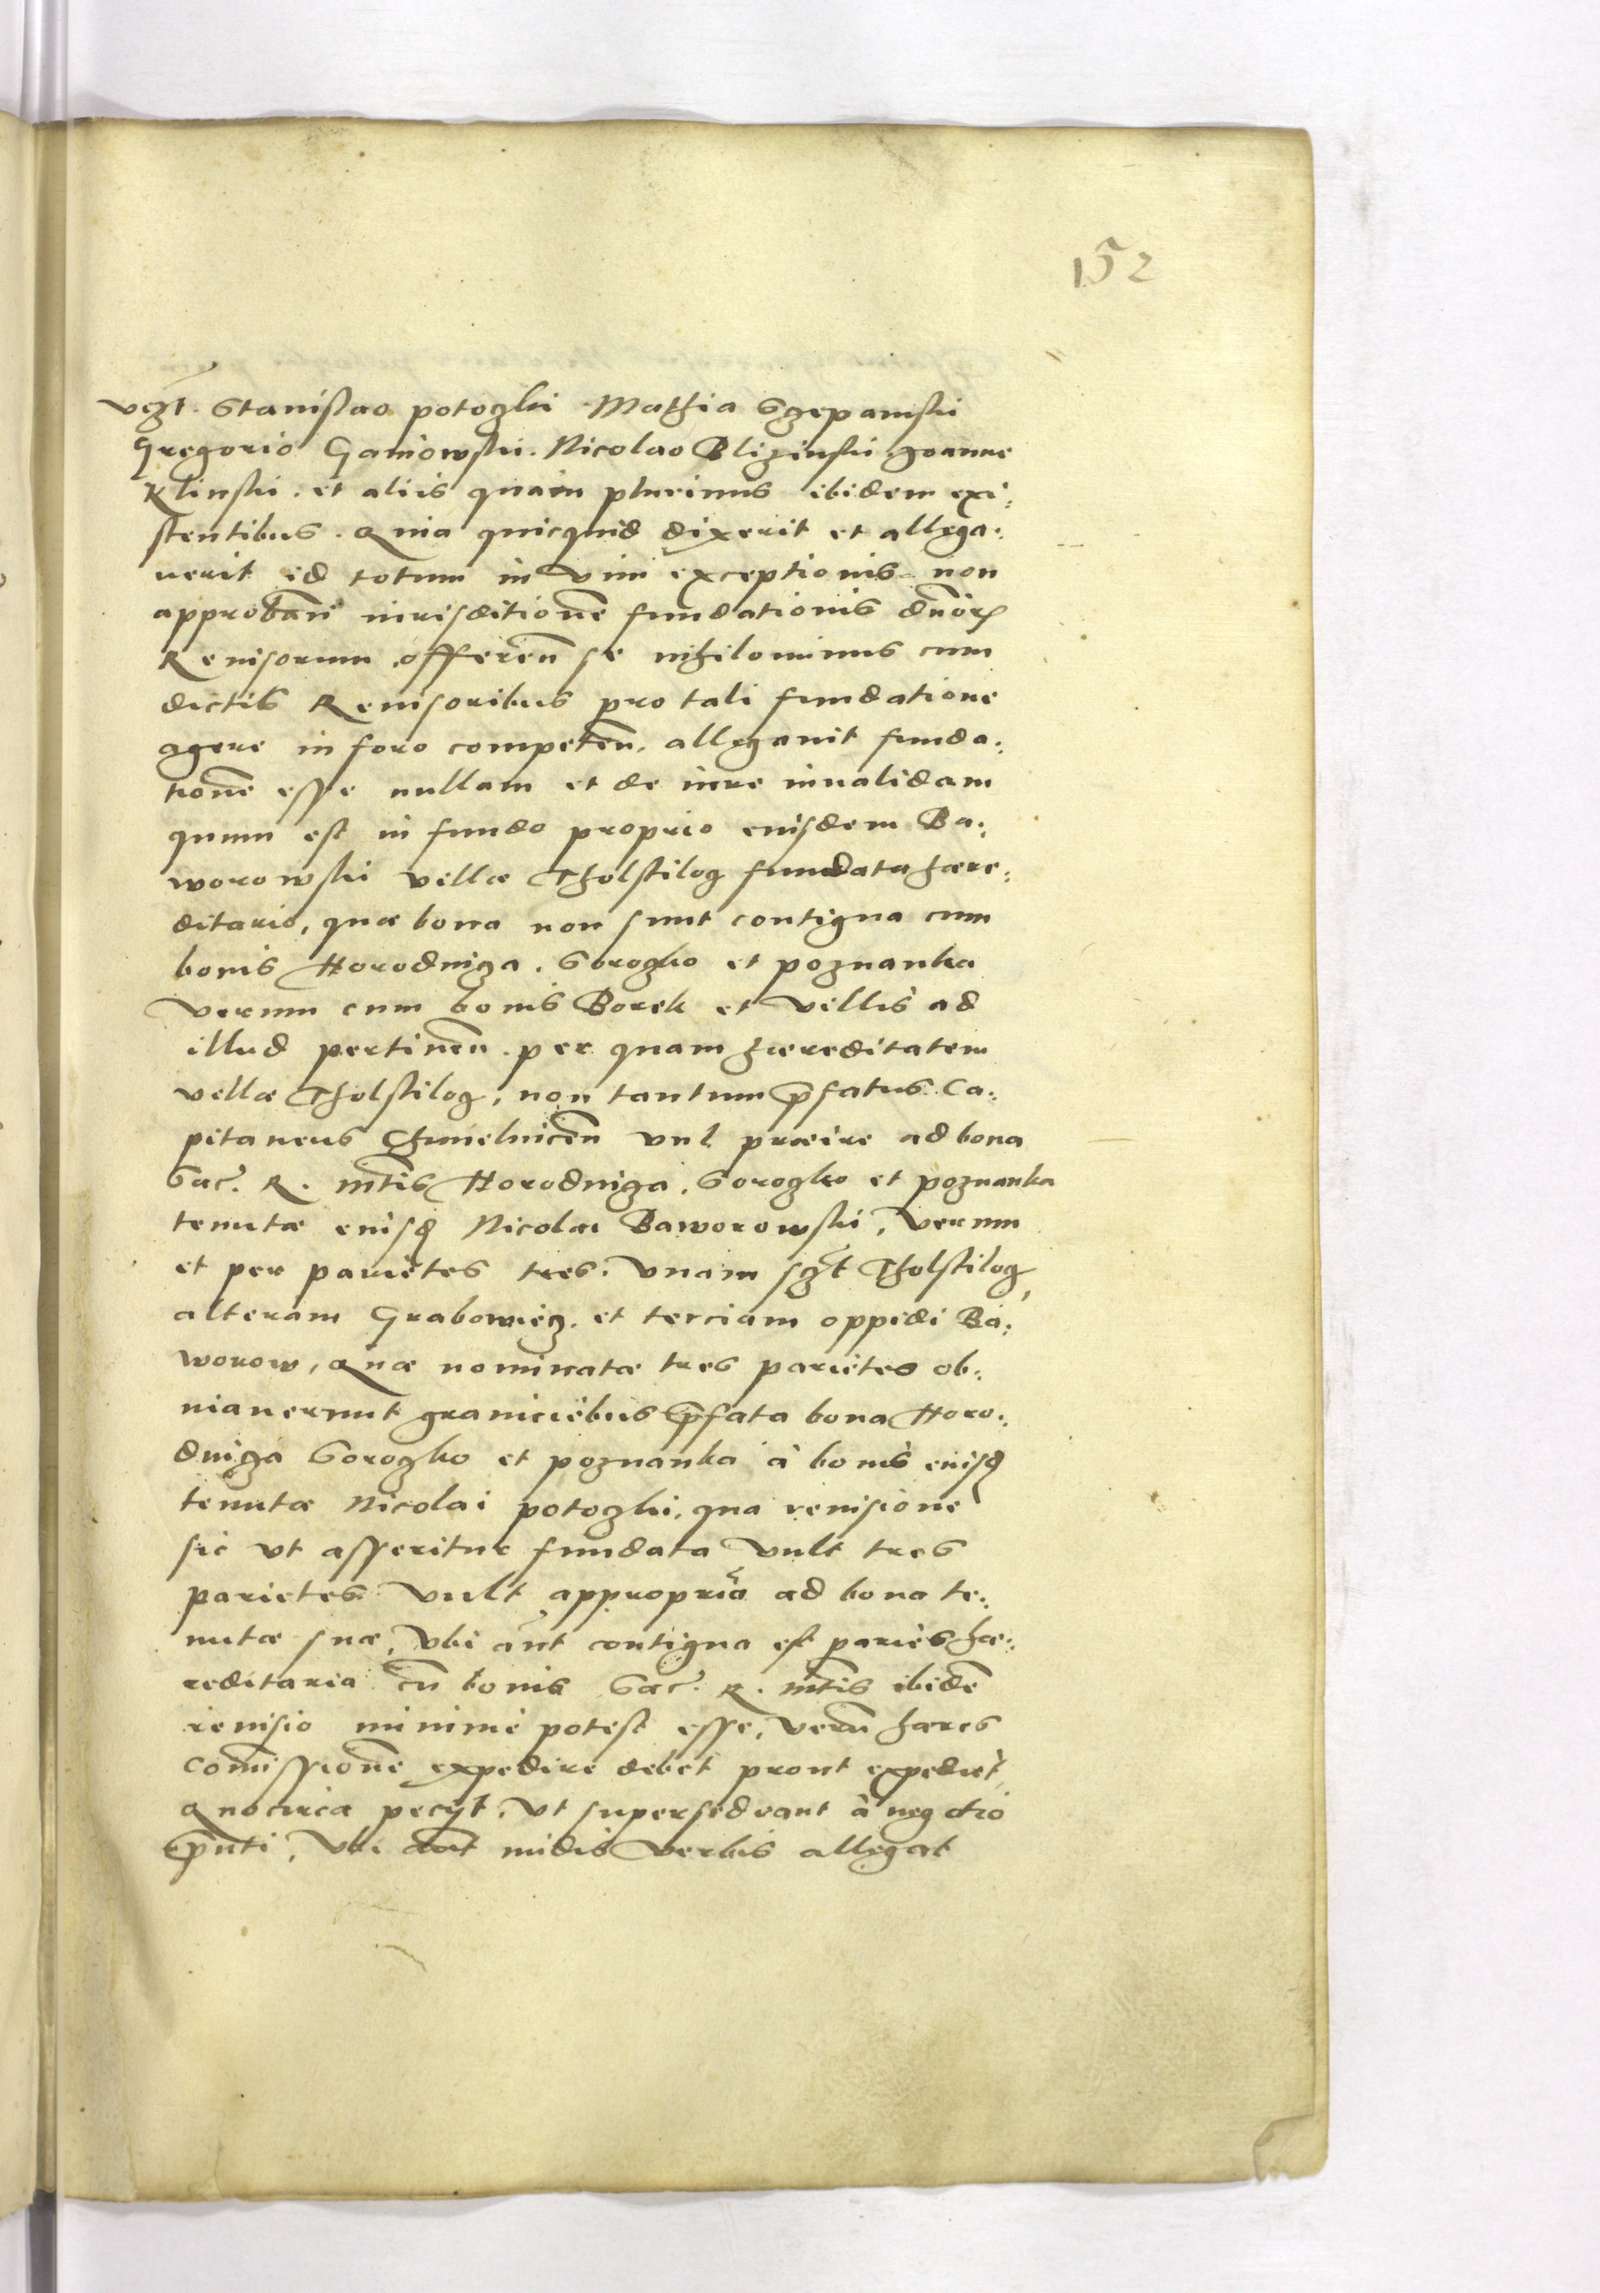 152
Stanislao potoczki Mathia Sczepanski
Gregorio Ganiowski. Nicolao Blizinski Joanne
Klinski. et aliis quam plurimis ibidem exi:
stentibus. Quia quicquid dixerit et allega:
uerit id totum in vim exceptionis non
approbañ iurisditionẽ fundationis dñorꝫ
Reuisorum offereñ se nihilominus cum
dictis Reuisoribus pro tali fundatione
agere in foro competeñ. allegauit funda:
tionẽ esse nullam et de iure inualidam
quum est in fundo proprio eiusdem Ba:
worowski villæ Tholstilog fundata hære:
ditario, quæ bona non sunt contigua cum
bonis Horodnicza. Soroczko et poznanka
verum cum bonis Borek et villis ad
illud pertineñ. per quam hæreditatem
villæ Tholstilog, non tantum p̃fatus Ca:
pitaneus Chmelniceñ vul præire ad bona
Sac. R. Mtis Horodnicza. Soroczko et poznanka
tenutæ eiusd Nicolai Baworowski, verum
et per parietes tres. vnam sczt Tholstilog,
alteram Grabowiecz. et terciam oppidi Ba:
worow, Quæ nominatæ tres parietes ob:
uiauerunt graniciebus p̃fata bona Horo:
dnicza Soroczko et poznanka à bonis eiusd
tenutæ Nicolai potoczki. qua reuisione
sic vt asseritur fundata vult tres
parietes vult appropria ad bona te:
nutæ suæ, vbi añt contigua est paries hæ:
reditaria cũ bonis Sac. R. Mtis ibidẽ
reuisio minime potest esse, verũ hæres
Comissionẽ expedire debet prout expediet,
Quocirca pecijt, vt supersedeant à negotio
p̃nti, vbi añt nudis verbis allegat